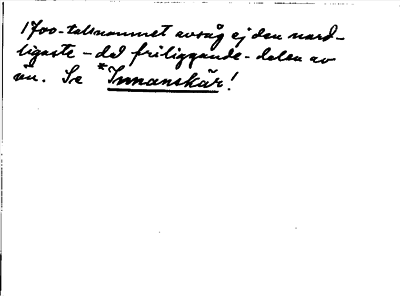 1700-talsnamnet avsåg ej den nord-
ligaste – del friliggande – delen av
ön. Se *Innanskär!